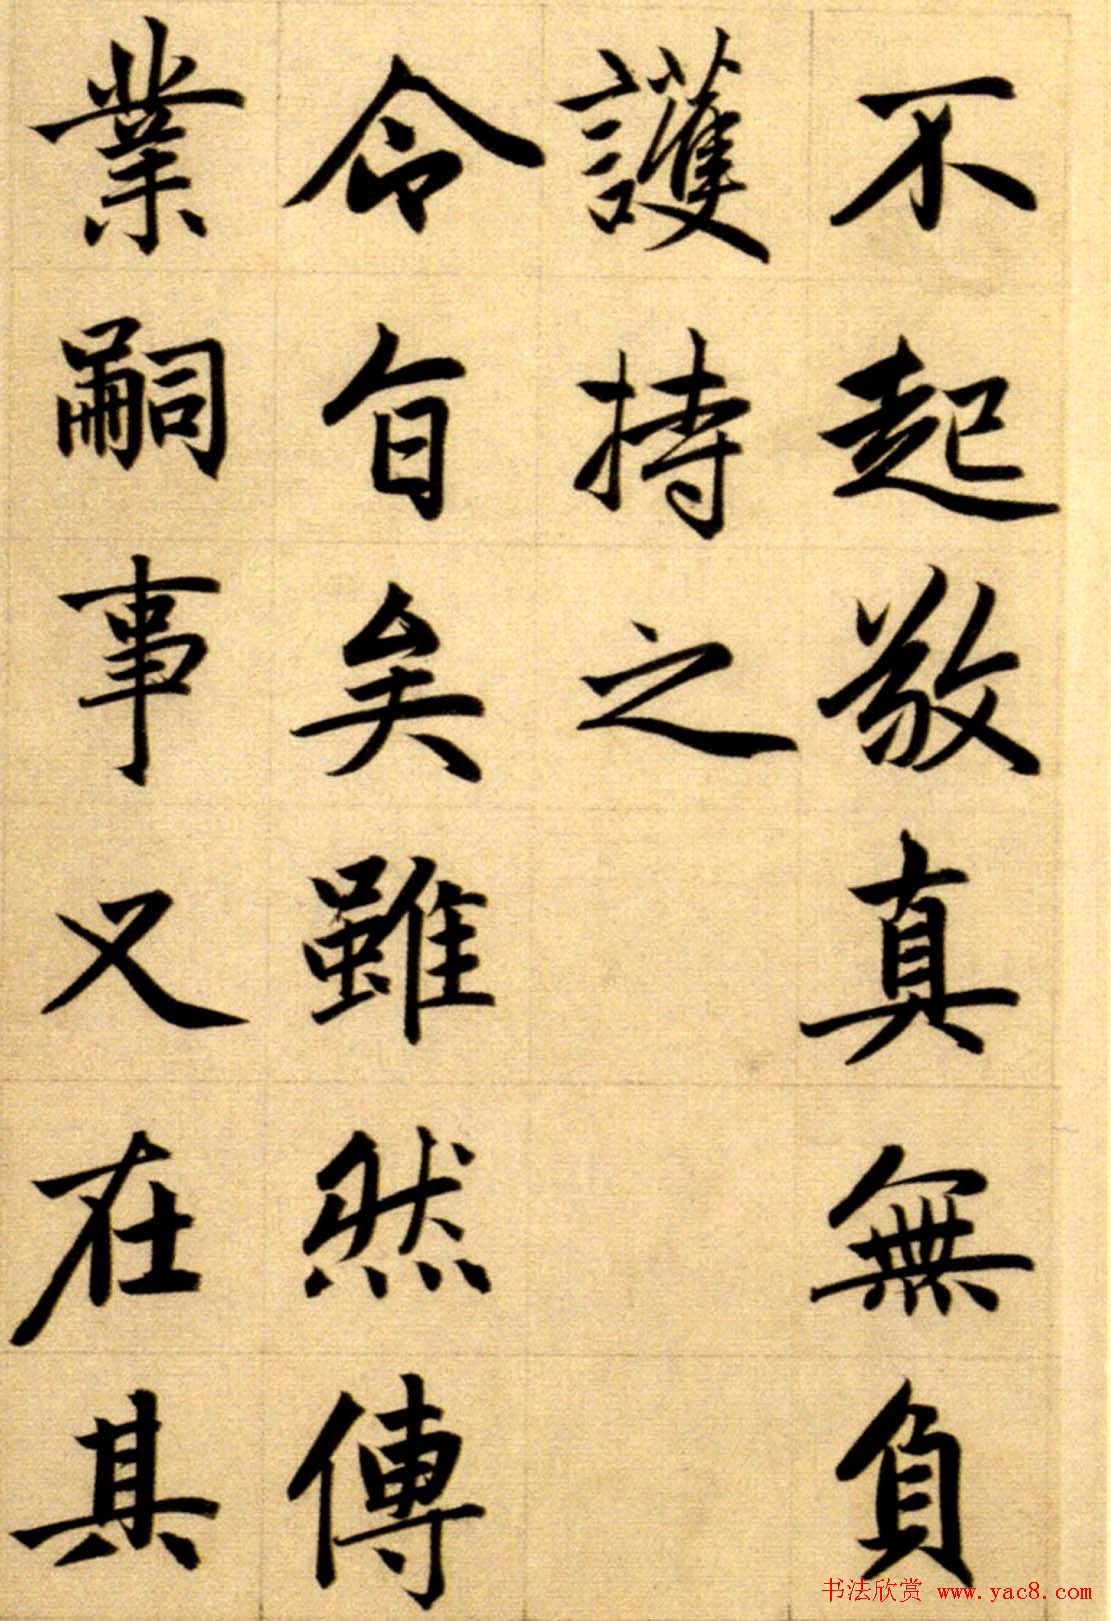 不起敬真無負
護持之
令旨矣雖然傳
業嗣事又在其
书法欣赏 www.yac8.com